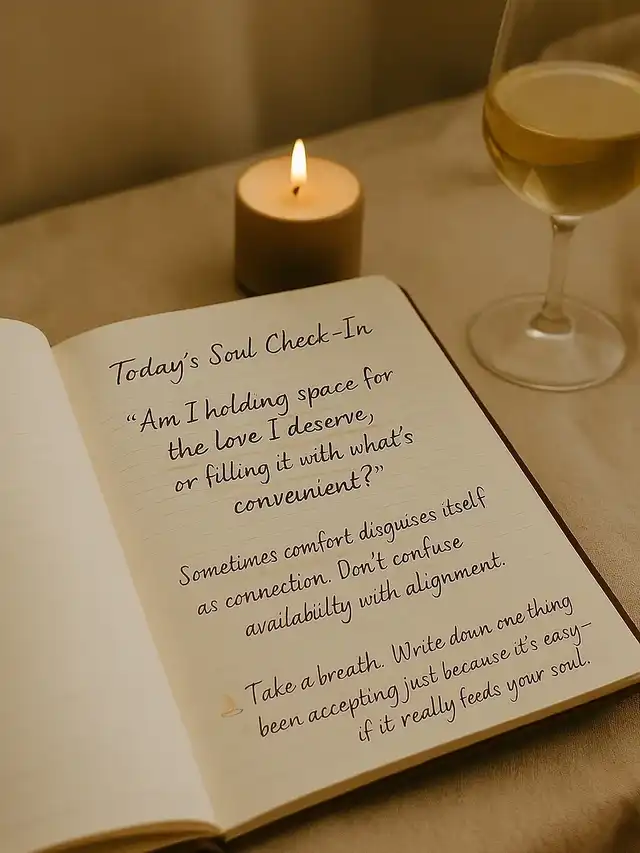 Today's Soul Check-In
"Am I holding space for
the love I deserve,
or filling it with what's
conveinient?"
Sometimes comfort disguises itself
as connection. Don't confuse
availabiilty with alignment.
Take a breath. Write doun one thing
been accepting just because it's easy–
if it really feeds your soul.